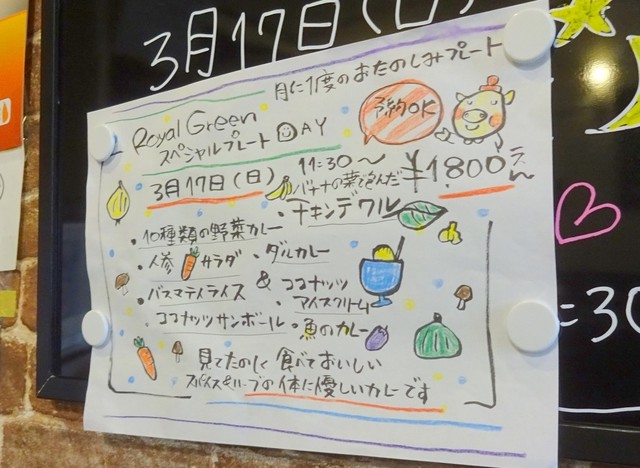 3月17日(日)
月に1度のおたのしみプレート
Royal Green
スペシャルプレートDAY
予約OK
3月17日(日) 11:30～ ¥1800えん
バナナの葉で包んだ
・チキンデクル
・10種類の野菜カレー
・人参サラダ ・ダルカレー
・バスマティライス & ココナッツアイスクリーム
ココナッツサンボール ・魚のカレー
見てたのしく 食べておいしい
スパイス&ハーブの体に優しいカレーです
:30